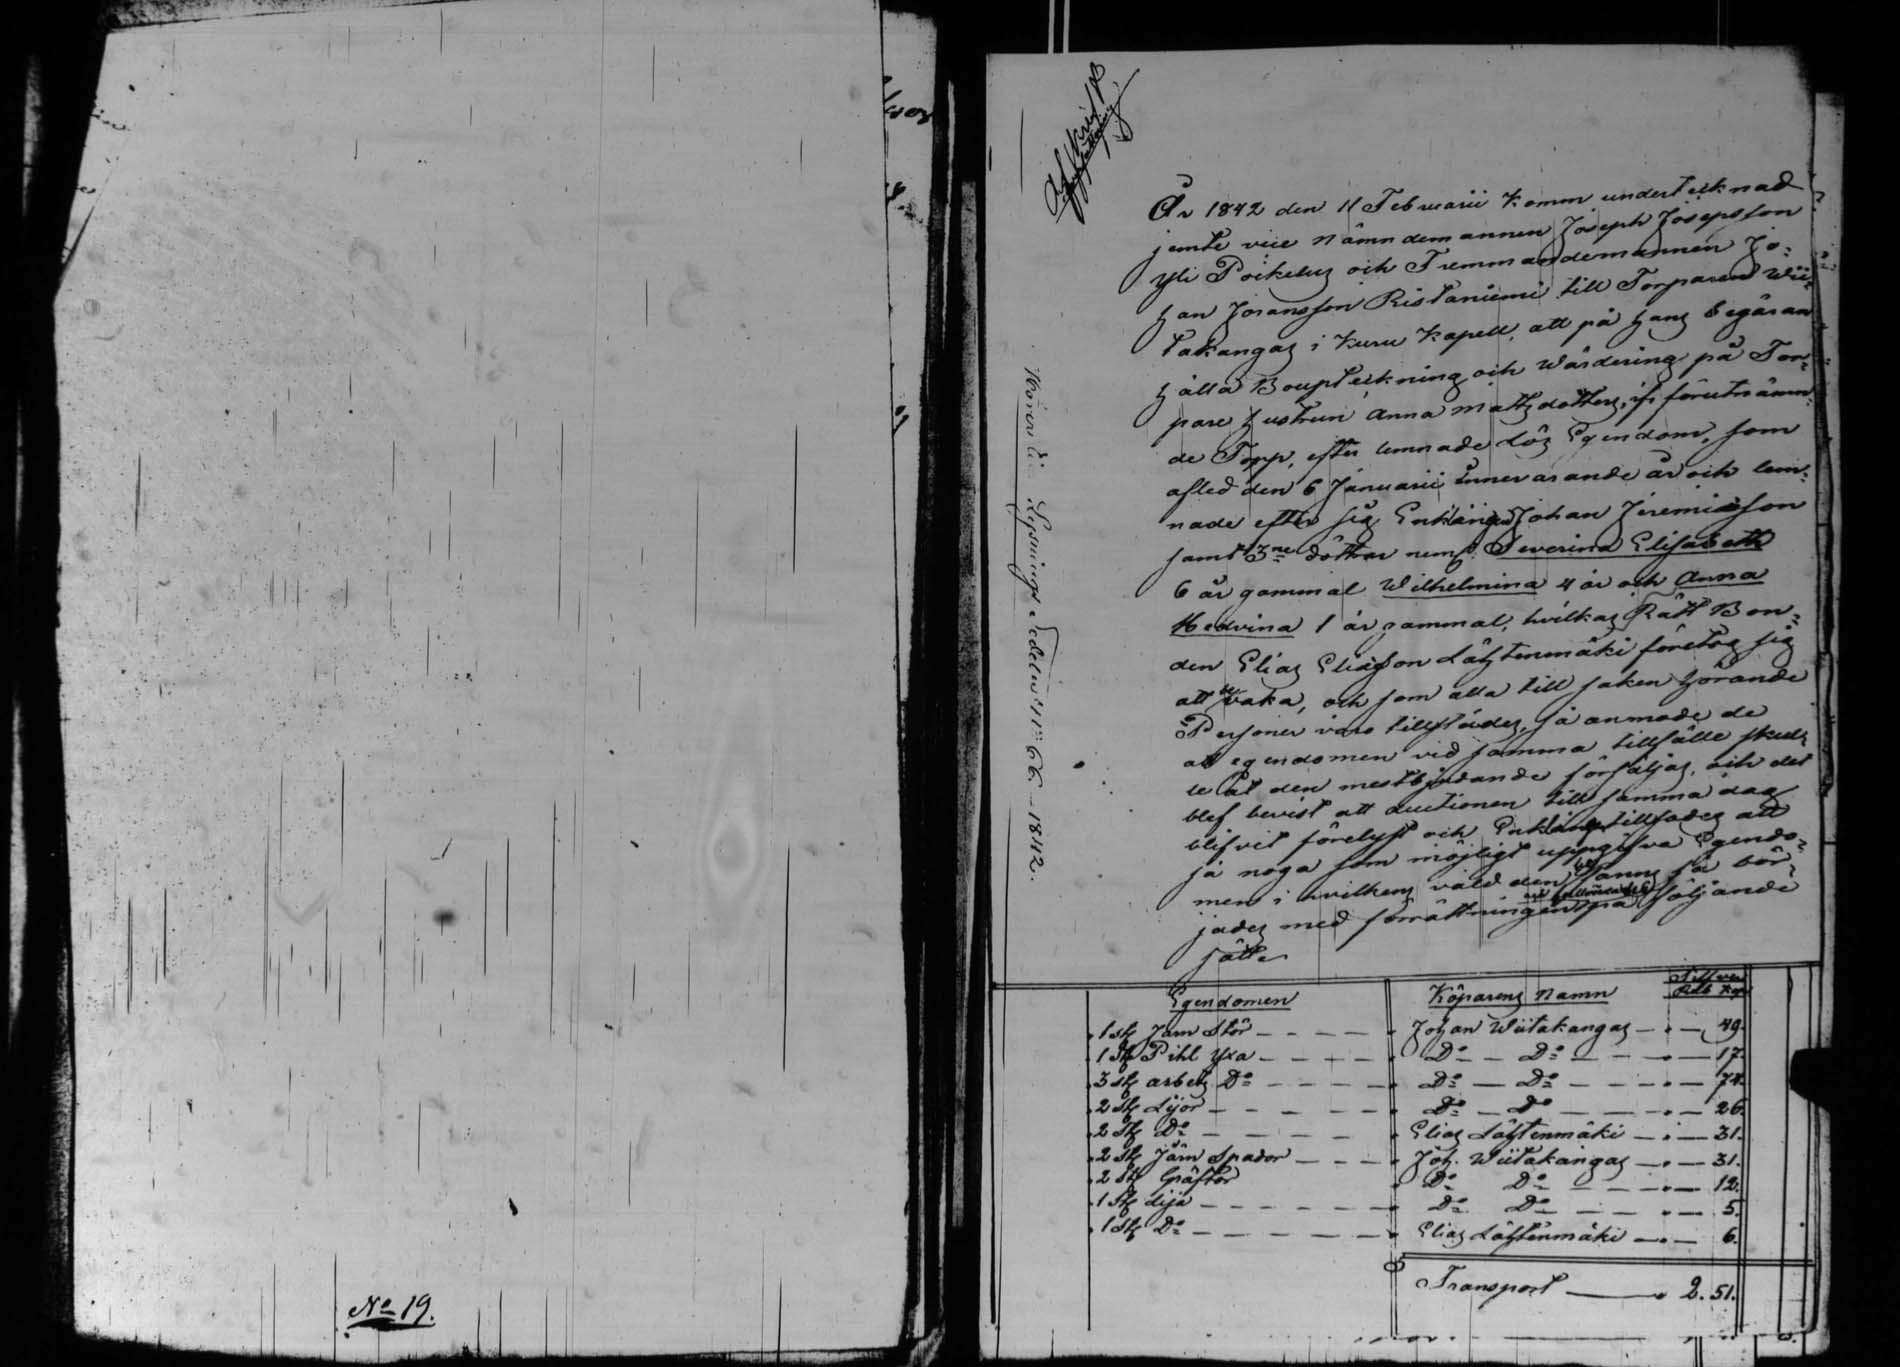 No 19.
År 1842 den 11 Februarii Komm undertecknad
jemte vice Nämndemannen Joseph Josepsson
Yli Poikelus och Fremmandemannen Jo-
han Joransson Ristaniemi till Torparen Wii-
takangas i Kuru Kapell, att på hans begäran
hålla Bouptekning och Wärdering på Tor-
pare hustrun Anna Mattsdotters, ifr förutnämn-
de Torp, efter lemnade Lös Egendom, som
afled den 6 Januarii innevarande år och lem-
nade efter sig Enklingen Johan Jeremiasson
samt 3ne döttrar neml. Severina Elisabeth
6 år gammal Wilhelmina 4 år och Anna
Hedvina 1 år gammal, hvilkas Rätt Bon-
den Elias Eliasson Lähtenmäki företog sig
att bevaka, och som alla till saken hörande
Personer voro tillstädes, så anmode de
att egendomen vid samma tillfälle skul-
le åt den mestbjudande försäljas, och det
blef bevist att auctionen till samma dag
blifvit förelyst och Enklingen tillsades att
så noga som möjligt uppgifva Egendo-
men i hvilkens våld den fanns så bör-
jades med förrättningen på följande
sätt
Egendomen Köparens Namn Silfver Rub Kop
1 stk Järn Stör Johan Wiitakangas 49.
1 Stk Pihl Yxa Do Do 17.
3 stk arbets Do Do Do 74.
2 Stk Lijor Do Do 26.
2 Stk Do Elias Lähtenmäki 31.
2 Stk Järn Spador Joh. Wiitakangas 31.
2 Stk Gräftor Do Do 12.
1 Stk Lija Do Do 5.
1 Stk Do Elias Lähtenmäki 6.
Transport 2.51.
Lysnings Sedeln No 66. 1842.